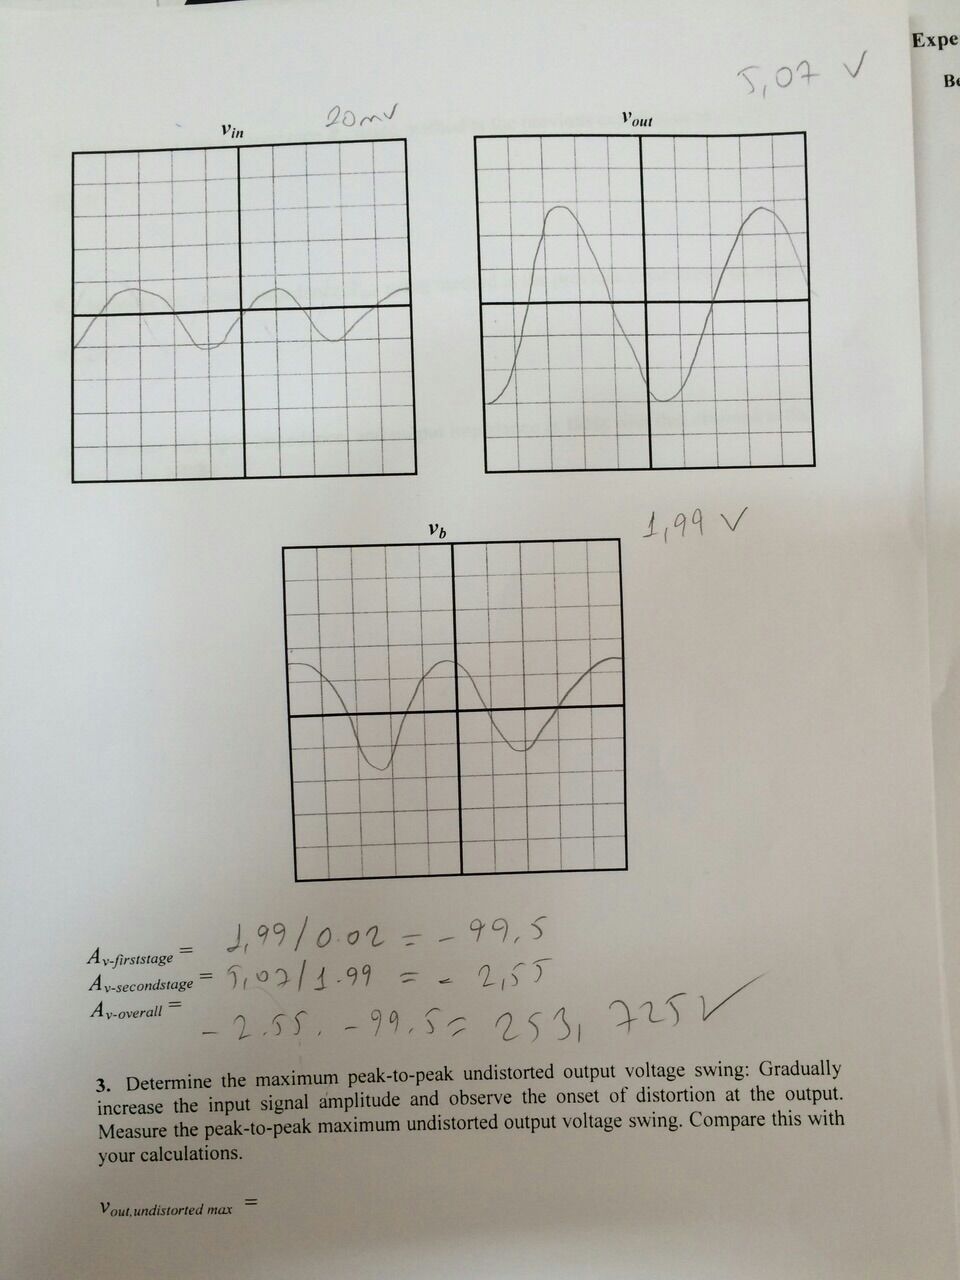 Expe
Be
5,07 V
20mV
vin
vout
1,99 V
vb
Av-firststage = 1,99/0.02 = - 99,5
Av-secondstage = 5,07/1.99 = - 2,55
Av-overall =
- 2.55. - 99.5 = 253, 725 ✓
3. Determine the maximum peak-to-peak undistorted output voltage swing: Gradually
increase the input signal amplitude and observe the onset of distortion at the output.
Measure the peak-to-peak maximum undistorted output voltage swing. Compare this with
your calculations.
vout,undistorted max =